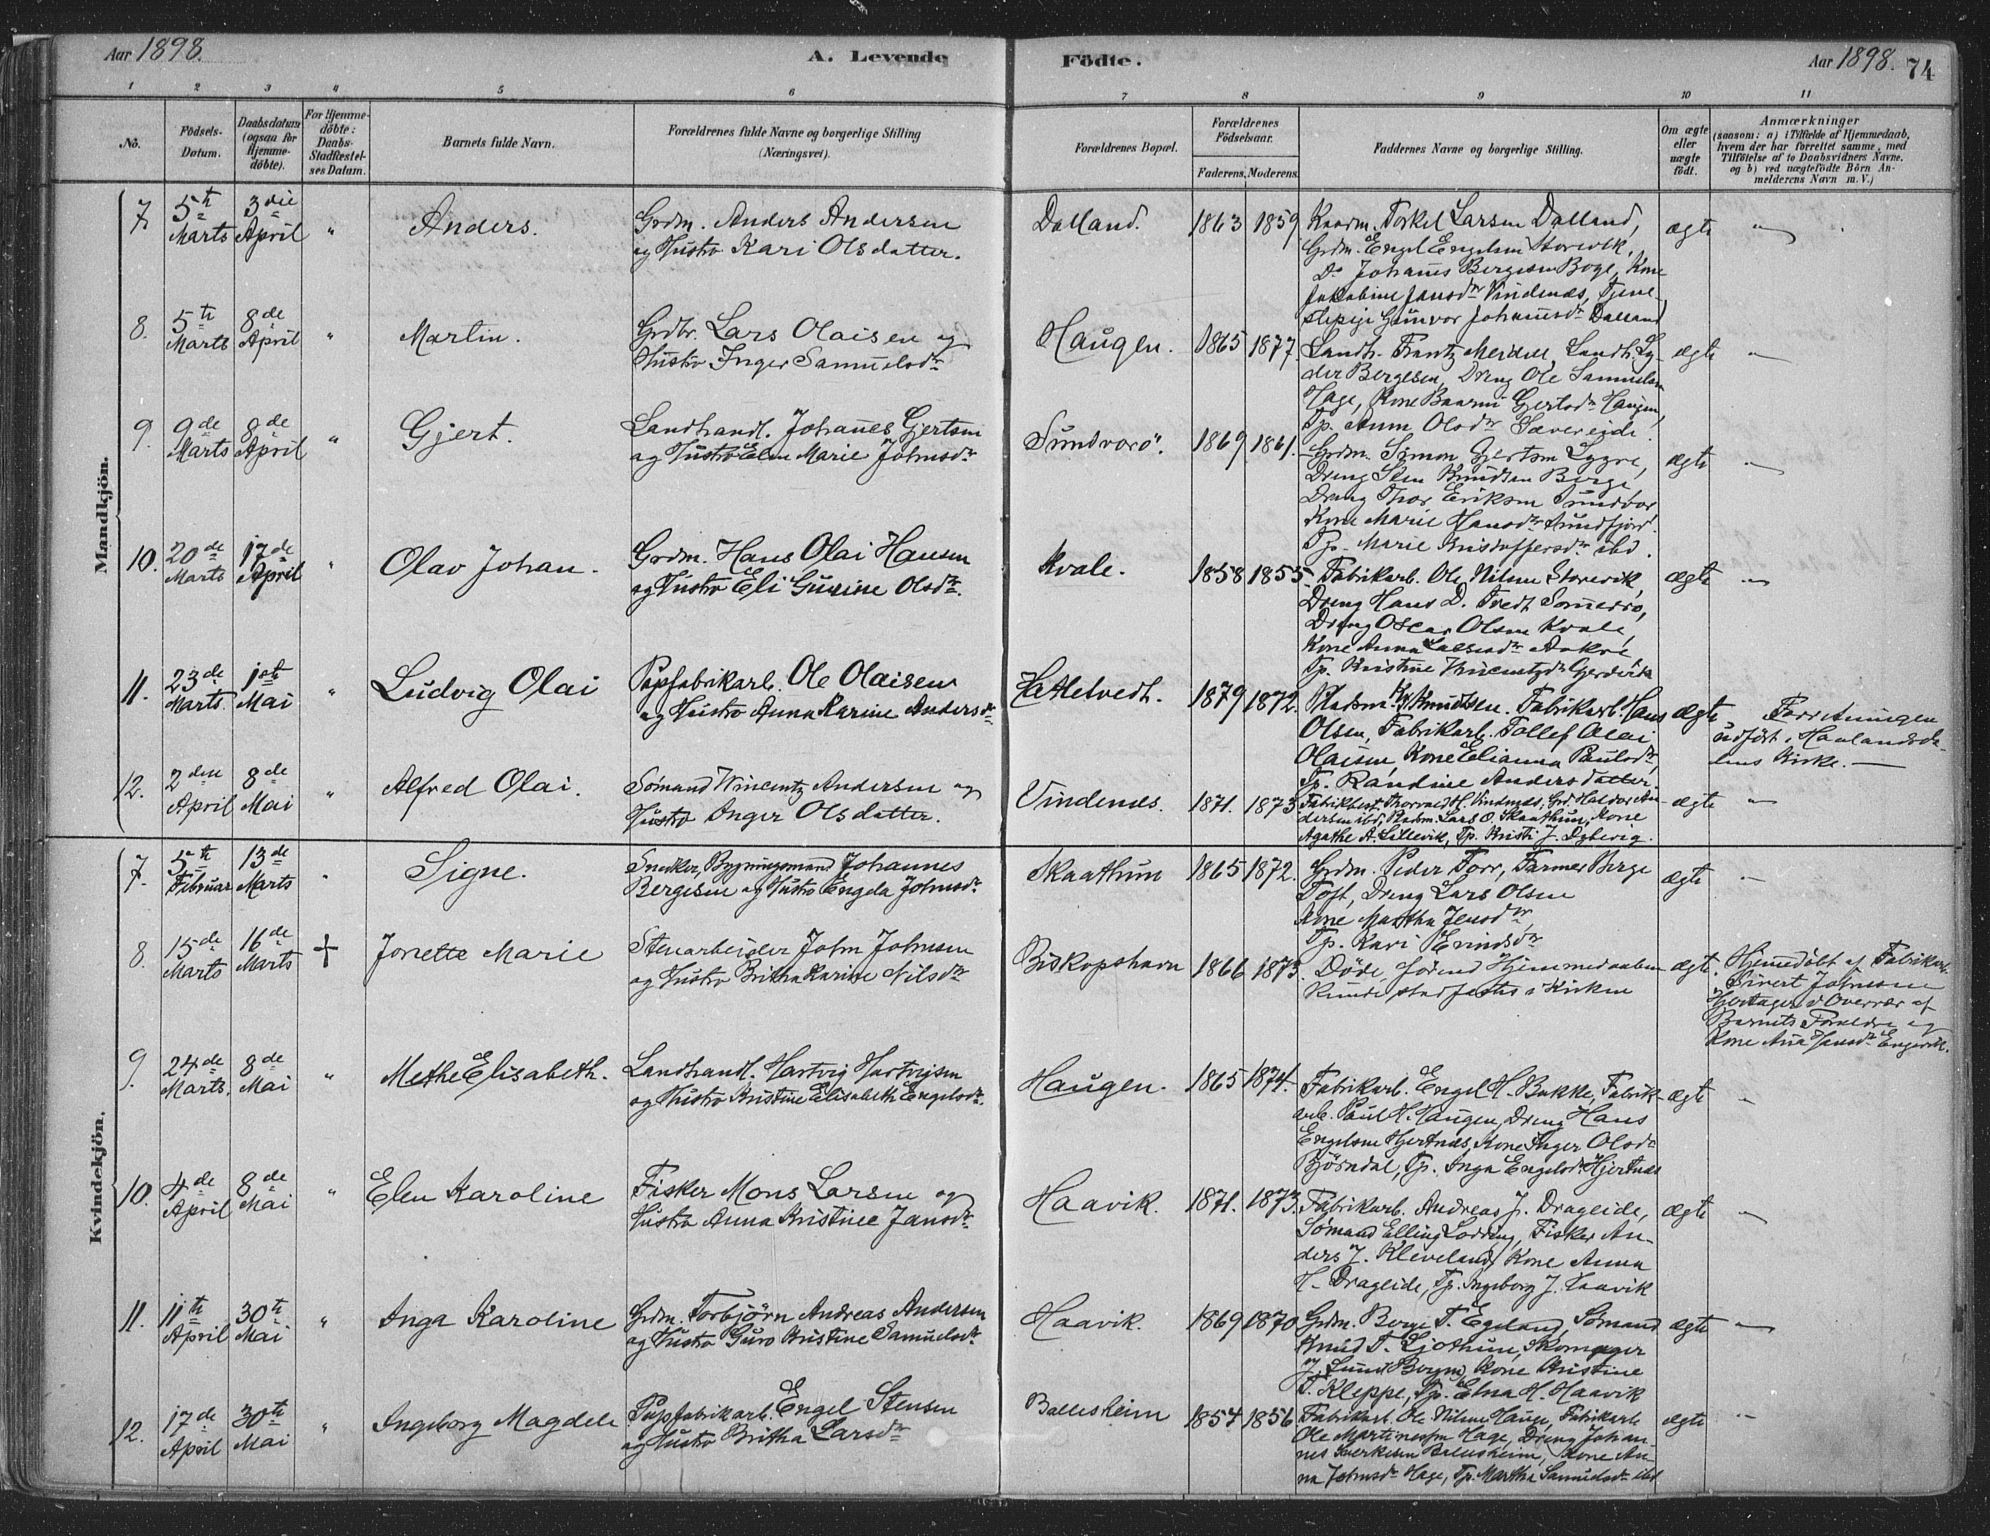 Aar 1898.
A. Levende
Födte.
Aar 1898. 74
1 2 3 4 5 6 7 8 9 10 11
No.
Födsels-
Datum.
Daabsdatum
(ogsaa for
Hjemme-
döbte).
For Hjemme-
döbte:
Daabs-
Stadfæstel-
ses Datum.
Barnets fulde Navn.
Forældrenes fulde Navne og borgerlige Stilling
(Næringsvei).
Forældrenes Bopæl.
Forældrenes
Födselsaar.
Faderens. Moderens.
Faddernes Navne og borgerlige Stilling.
Om ægte
eller
uægte
födt.
Anmærkninger
(saasom: a) i Tilfælde af Hjemmedaab,
hvem der har forrettet samme, med
Tilföielse af to Daabsvidners Navne,
og b) ved uægtefödte Börn An-
melderens Navn m. V.)
Mandkjön.
7. 5te Marts 3die April " Anders.
Grdm. Anders Andersen
og Hustro Kari Olsdatter.
Dalland. 1863 1859
Kaarm. Torkel Larsen Dalland,
Grdm. Engel Engelsen Storevik,
Do Johannes Bergesen Boge, Kone
Jakobine Jansdr Vindenæs, Tjene-
stepige Gunvor Johannesdr Dalland
ægte "
8. 5te Marts 8de April " Martin.
Grdbr. Lars Olaisen og
Hustro Inger Samuelsdr
Haugen. 1865 1877.
Landh. Frantz Meidell, Landh. Ly-
der Bergesen, Dreng Ole Samuelsen
Hage, Kone Gjertsdr Haugen,
Tp. Anna Olsdr Sævereide.
ægte "
9. 9de Marts 8de April " Gjert.
Landhandl. Johannes Gjertsen
og Hustro Elen Marie Johnsdr
Sundvorö. 1869 1861.
Grdm. Simon Gjertsen Lygre,
Dreng Sten Knudsen Berge
Dreng Thor Eriksen Sundvor
Kone Marie Hansdr Sundfjord.
Tp. Marie Kristoffersdr ibd.
ægte "
10. 20de Marts 17de April " Olav Johan.
Grdm. Hans Olai Hansen
og Hustro Eli Gurine Olsdr.
Kvale. 1858 1855.
Fabrikarb. Ole Nilsen Storevik,
Dreng Hans D. Tvedt Sömerrö,
Dreng Oscar Olsen Kvale,
Kone Anna Larsdr
Tp. Kristine Vincentzdr Gjerdevik
ægte "
11. 23de Marts. 1ste Mai " Ludvig Olai
Papfabrikarb. Ole Olaisen
og Hustro Anna Karine Andersdr
Hatletvedt. 1879 1872.
Pladsm. Knudtsen. Fabrikarb. Hans
Olsen, Fabrikarb. Tollef Olai
Olaisen, Kone Elianna Paulsdr,
Tp. Randine Andersdatter.
ægte Forretningen
udført i Haalandsda-
lens Kirke. —
12. 2den April 8de Mai " Alfred Olai.
Sømand Wincentz Andersen og
Hustro Inger Olsdatter.
Vindenæs. 1871. 1873
Fabrikbest. Thormod H. Vindenæs, Grd. Haldor An-
dersen ibd, Pladsm. Lars O. Skaathun, Kone
Agathe A. Lillevik, Tp. Kristi J. Dybevig.
ægte "
Kvindekjön.
7. 5te Februar 13de Marts " Signe.
Snedker, Bygningsmand Johannes
Bergesen og Hustro Engela Johnsdr
Skaathun 1865 1872.
Grdm. Peder Torr, Farmer Berge
Toft, Dreng Lars Olsen
Kone Martha Jensdr,
Tp. Kari Evindsdr
ægte "
8. 15de Marts 16de Marts + Jonette Marie
Stenarbeider John Johnsen
og Hustro Britha Karine Nilsdr
Biskopshavn 1866 1873.
Döde förend Hjemmedaaben
kunde stadfæstes i Kirken
ægte. Hjemmedöbt af Fabrikarb.
Sivert Johnsen
Hjertager i Overvær af
Barnets Forældre og
Kone Ana Hansdr Engevik.
9. 24de Marts. 8de Mai " Methe Elisabeth.
Landhandl. Hartvig Hartvigsen
og Hustro Kristine Elisabeth Engelsdr.
Haugen. 1865 1874.
Fabrikarb. Engel H. Bakke, Fabrik-
arb. Paul H. Haugen, Dreng Hans
Engelsen Hjertnæs, Kone Inger Olsdr
Björndal, Tp. Inga Engelsdr Hjertnæs
ægte "
10. 4de April 8de Mai " Elen Karoline
Fisker Mons Larsen og
Hustro Anna Kristine Jansdr
Haavik. 1871. 1873.
Fabrikarb. Andreas J. Drageide,
Sømand Elling, Fisker An-
ders J. Kleveland, Kone Anna
H. Drageide, Tp. Ingeborg J. Haavik
ægte "
11. 11te April 30te Mai " Inga Karoline
Grdm. Torbjörn Andreas Andersen
og Hustro Guro Kristine Samuelsdr.
Haavik 1869 1870
Grdm. Borge T. Egeland, Sömand
Knud T. Ljothun, Skomager
J. Lund Bergen, Kone Kristine
T. Kleppe, Tp. Elna H. Haavik
ægte "
12. 17de April 30te Mai " Ingeborg Magdele
Papfabrikarb. Engel Stensen
og Hustro Britha Larsdr
Ballesheim 1854 1856
Fabrikarb. Ole Nilsen Hauge, Fabrikarb
Ole Martinessen Hage, Dreng Johan-
nes Sverkesen Balesheim, Kone An-
na Johnsdr Hage, Tp. Martha Samuelsdr ibd
ægte "